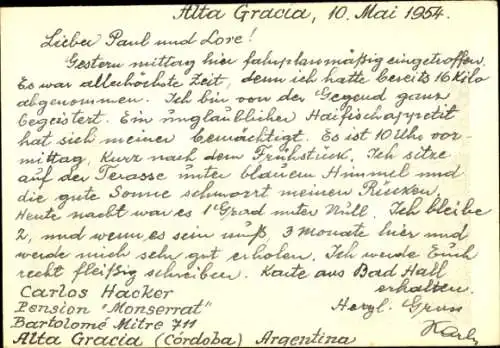 Alta Gracia, 10. Mai 1954.
Lieber Paul und Lore!
Gestern mittag hier fahrplanmäßig eingetroffen.
Es war allerhöchste Zeit, denn ich hatte bereits 16 Kilo
abgenommen. Ich bin von der Gegend ganz
begeistert. Ein unglaublicher Haifischappetit
hat sich meiner bemächtigt. Es ist 10 Uhr vor-
mittag, kurz nach dem Frühstück. Ich sitze
auf der Terasse unter blauem Himmel und
die gute Sonne schmorrt meinen Rücken.
Heute nacht war es 1 Grad unter Null. Ich bleibe
2, und wenn es sein muß, 3 Monate hier und
werde mich sehr gut erholen. Ich werde Euch
recht fleißig schreiben. Karte aus Bad Hall
erhalten.
Carlos Hacker
Herzl. Gruss
Pension "Monserrat"
Karl
Bartolomé Mitre 711
Alta Gracia (Córdoba) Argentina